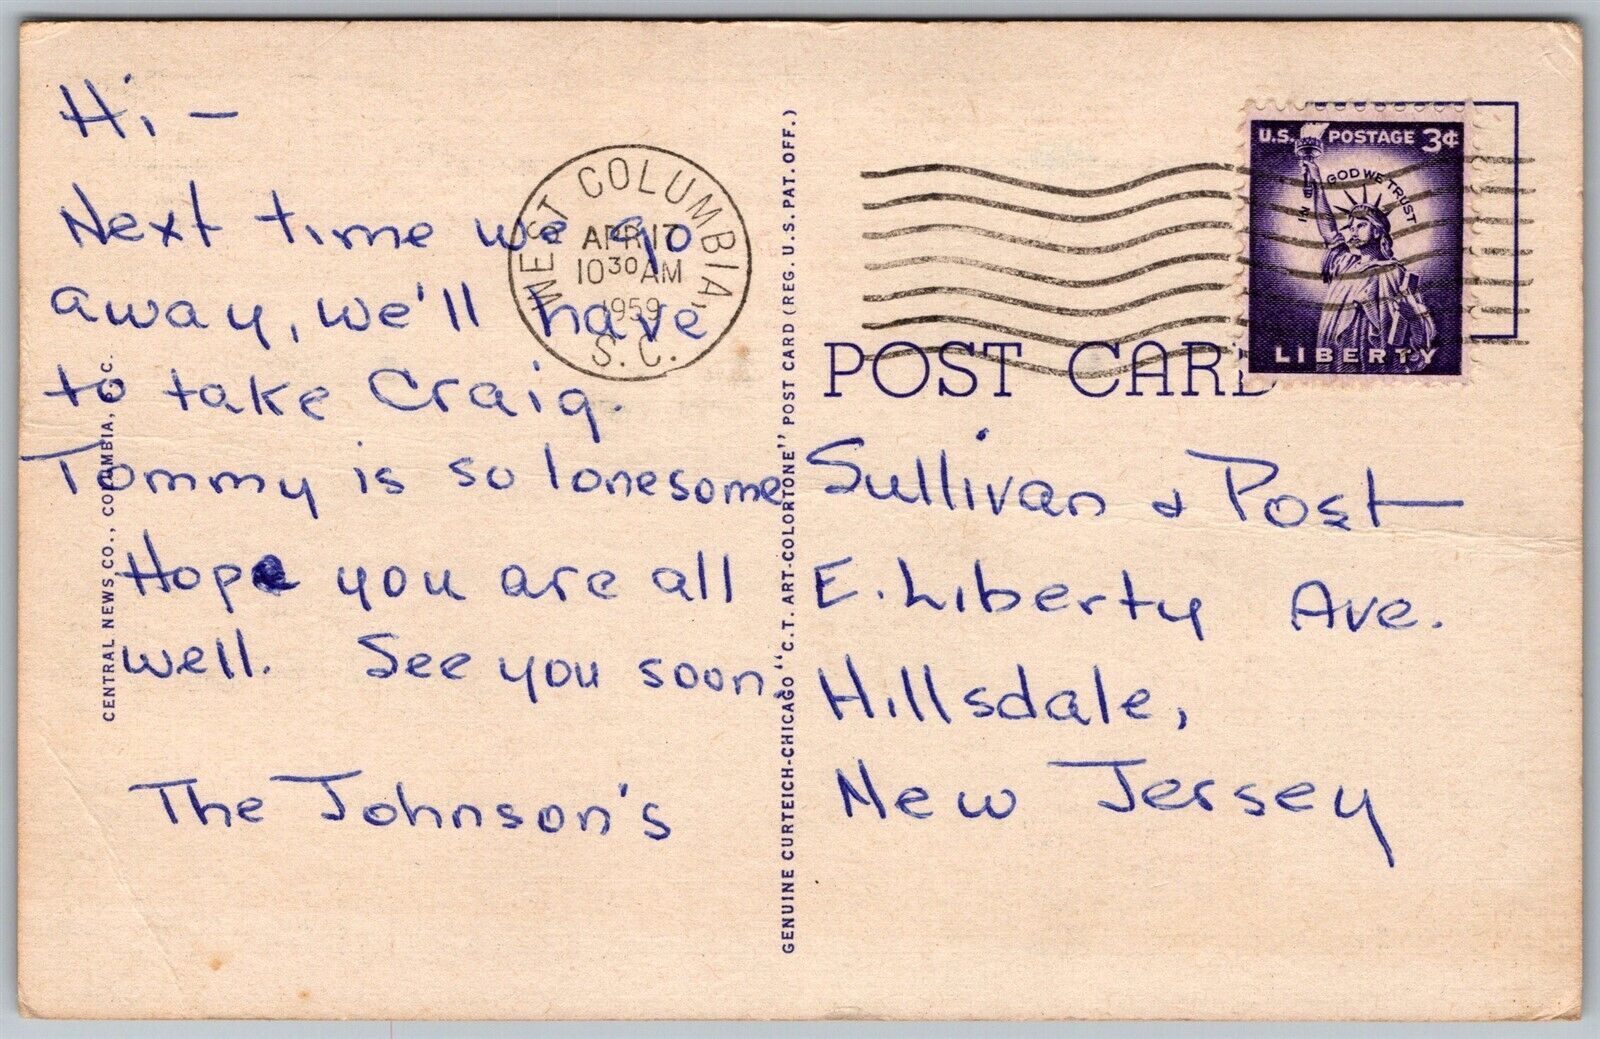 Hi -
Next time we go
away, we'll have
to take Craig.
Tommy is so lonesome
Hope you are all
well. See you soon.
The Johnson's
CENTRAL NEWS CO., COLUMBIA, S. C.
WEST COLUMBIA,
APR 17
10 30 AM
1959
S. C.
GENUINE CURTEICH-CHICAGO "C. T. ART-COLORTONE" POST CARD (REG. U. S. PAT. OFF.)
U.S. POSTAGE 3¢
IN GOD WE TRUST
LIBERTY
POST CARD
Sullivan & Post
E. Liberty Ave.
Hillsdale,
New Jersey